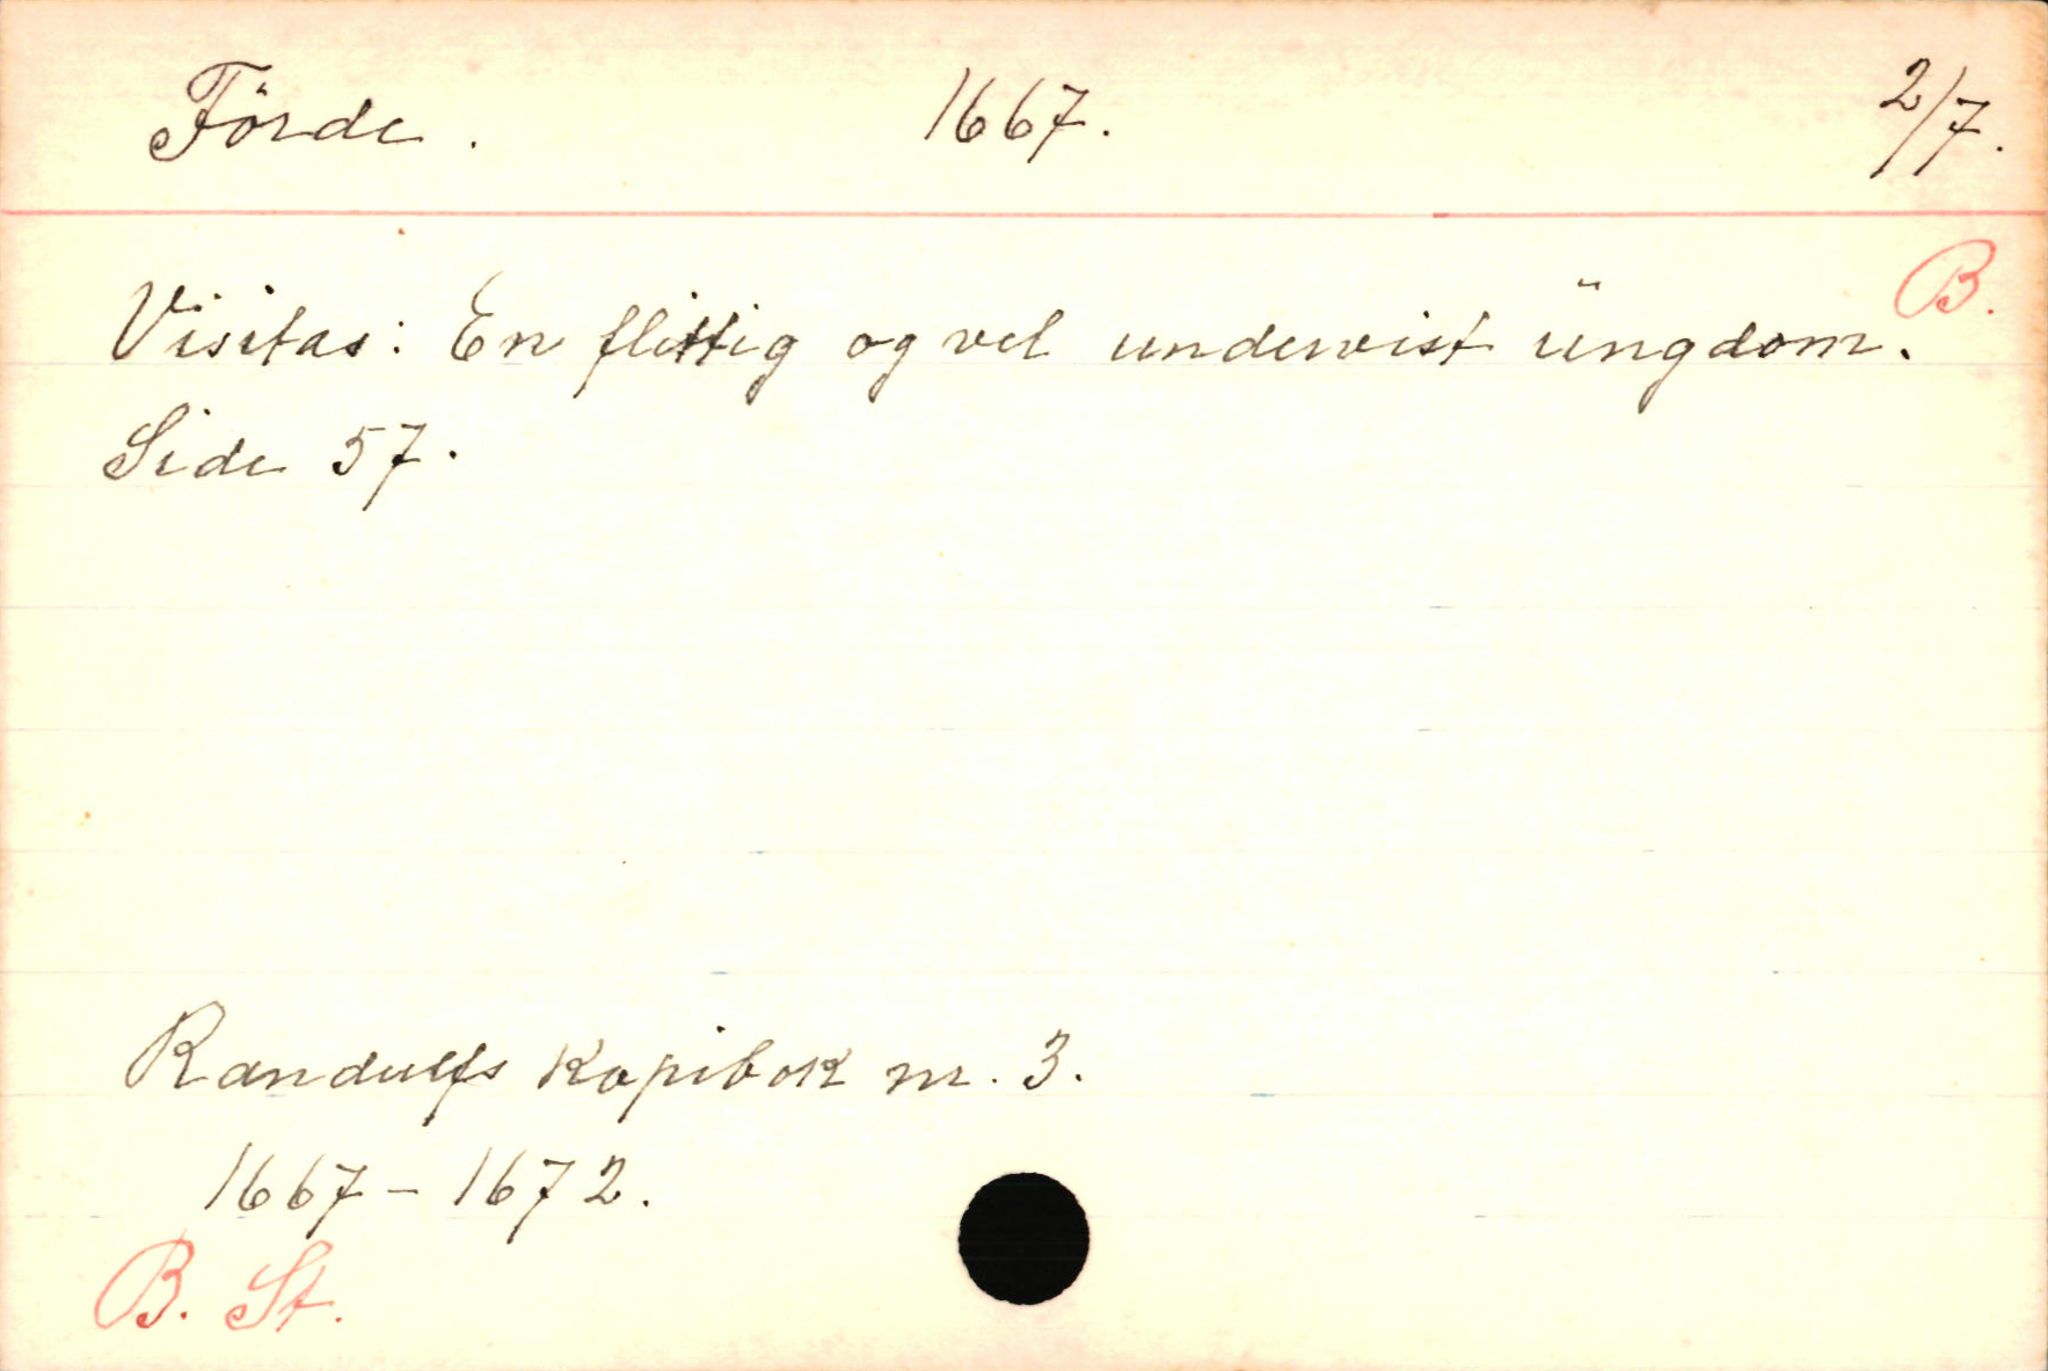 Förde. 1667. 2/7.
B.
Visitas: En flittig og vel undervist üngdom.
Side 57.
Randulfs kopibok nr. 3.
1667-1672.
B. St.